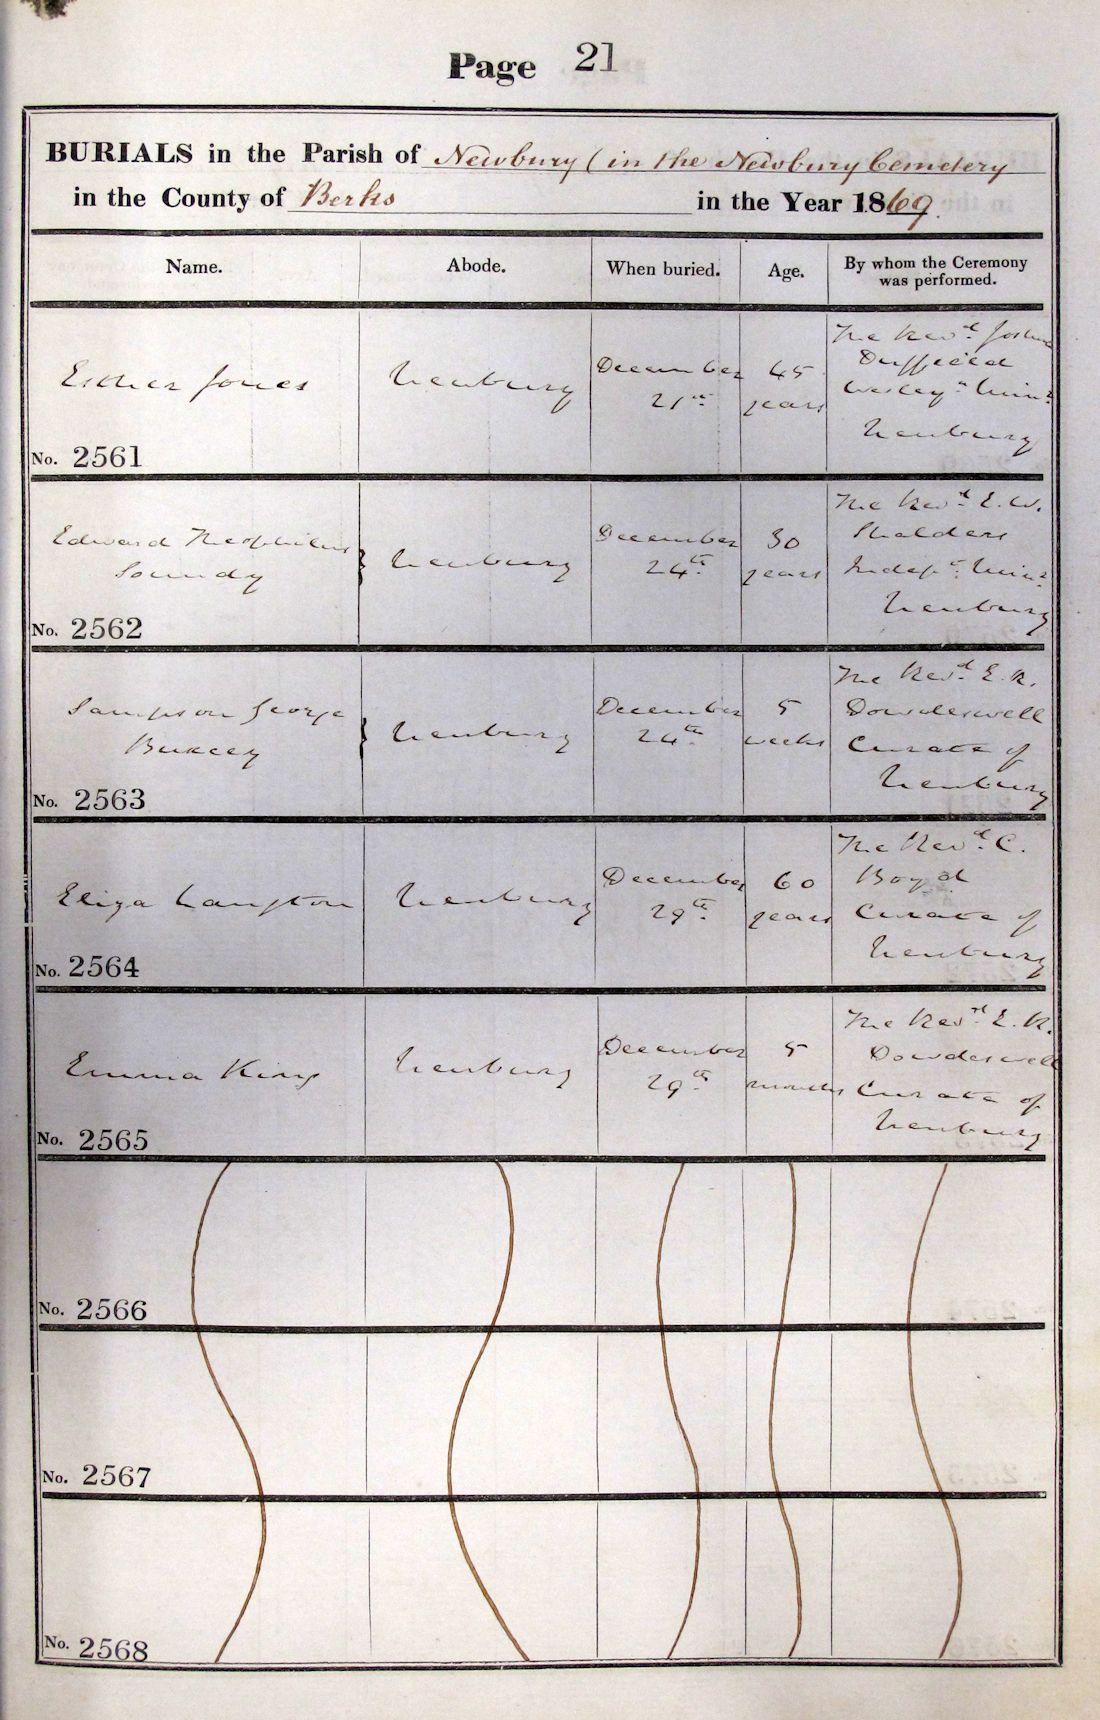 Page 21
BURIALS in the Parish of Newbury (in the Newbury Cemetery
in the County of Berks in the Year 1869.
Name. Abode. When buried. Age. By whom the Ceremony was performed.
Esther Jones Newbury December 21st 45 years The Revd. Joshua
Duffield
Wesleyn Minr.
Newbury
No. 2561
Edward Theophilus Soundy } Newbury December 24th. 30 years The Revd. E. W.
Shalders
Indept. Minr.
Newbury
No. 2562
Sampson George } Newbury December 24th. 5 weeks The Revd. E. R.
Dowdeswell
Curate of
Newbury
No. 2563
Eliza Langton Newbury December 29th. 60 years The Revd. C.
Boyd
Curate of
Newbury
No. 2564
Emma King Newbury December 29th 5 months The Revd. E. R.
Dowdeswell
Curate of
Newbury
No. 2565
No. 2566
No. 2567
No. 2568